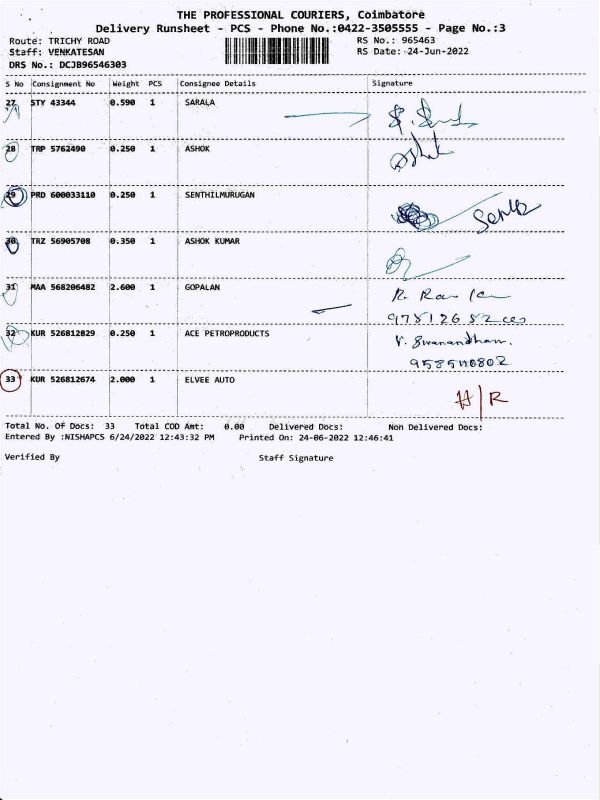 THE PROFESSIONAL COURIERS, Coimbatore
Delivery Runsheet - PCS - Phone No.:0422-3505555 - Page No.:3
Route: TRICHY ROAD RS No.: 965463
Staff: VENKATESAN RS Date: 24-Jun-2022
DRS No.: DCJB96546303
S No Consignment No Weight PCS Consignee Details Signature
27 STY 43344 0.590 1 SARALA
28 TRP 5762490 0.250 1 ASHOK
29 PRD 600033110 0.250 1 SENTHILMURUGAN
30 TRZ 56905708 0.350 1 ASHOK KUMAR
31 MAA 568206482 2.600 1 GOPALAN
32 KUR 526812829 0.250 1 ACE PETROPRODUCTS
33 KUR 526812674 2.000 1 ELVEE AUTO
H/R
Total No. Of Docs: 33 Total COD Amt: 0.00 Delivered Docs: Non Delivered Docs:
Entered By :NISHAPCS 6/24/2022 12:43:32 PM Printed On: 24-06-2022 12:46:41
Verified By Staff Signature